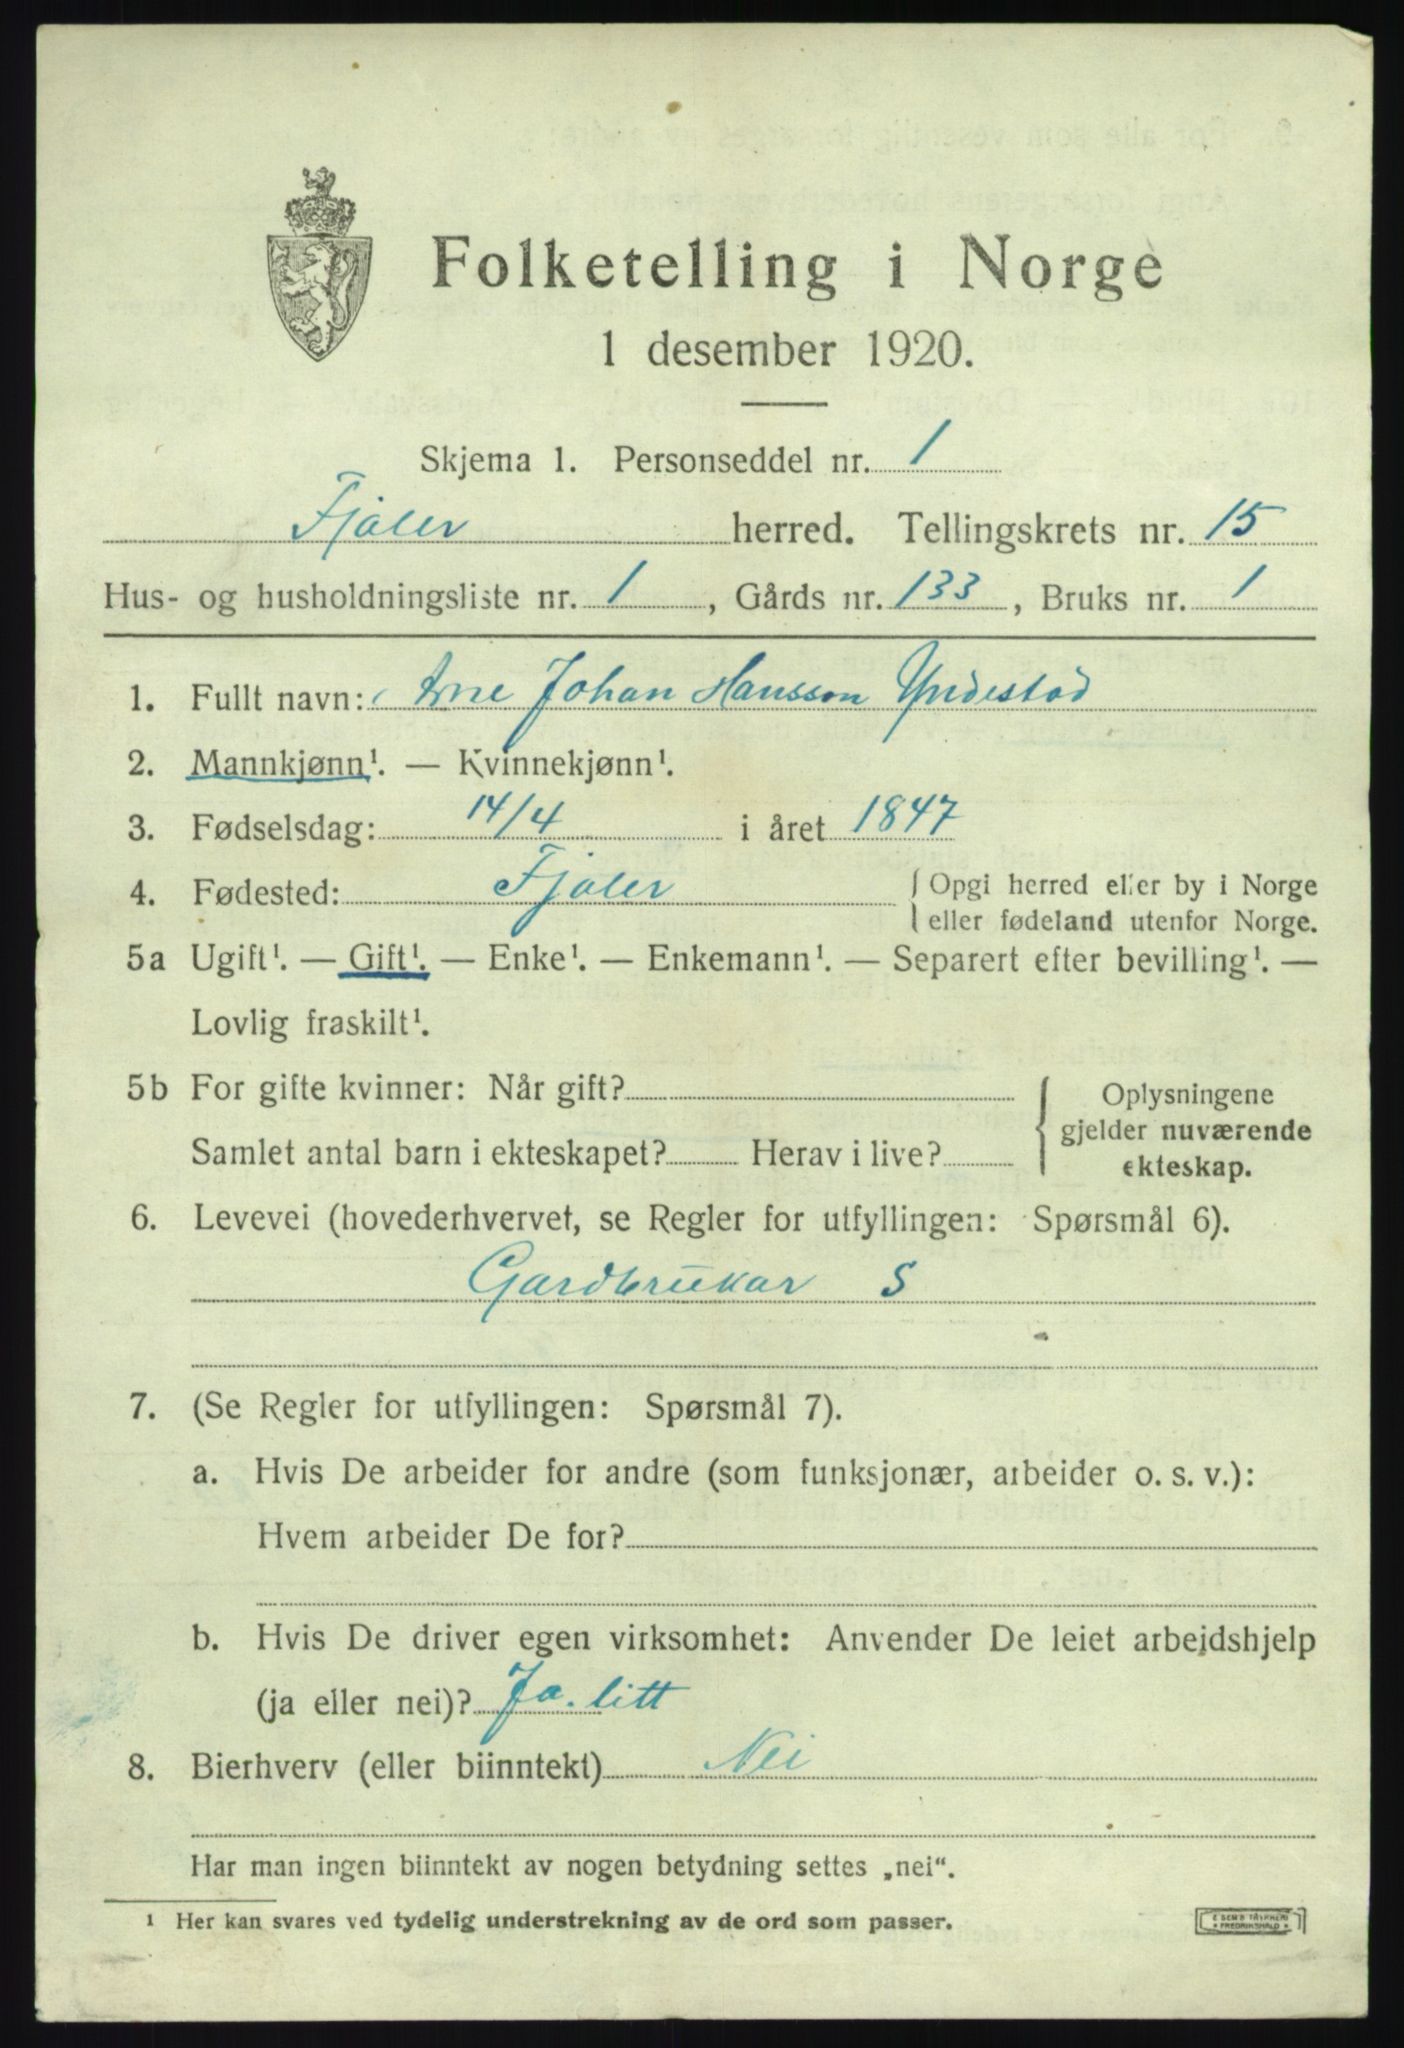 Folketelling i Norge
1 desember 1920.
Skjema 1. Personseddel nr. 1
Fjaler herred. Tellingskrets nr. 15
Hus- og husholdningsliste nr. 1, Gårds nr. 133, Bruks nr. 1
1. Fullt navn: Arne Johan Hansson Yndestad
2. Mannkjønn¹. — Kvinnekjønn¹.
3. Fødselsdag: 14/4 i året 1847
4. Fødested: Fjaler { Opgi herred eller by i Norge
eller fødeland utenfor Norge.
5a Ugift¹. — Gift¹. — Enke¹. — Enkemann¹. — Separert efter bevilling¹. —
Lovlig fraskilt¹.
5b For gifte kvinner: Når gift?
Samlet antal barn i ekteskapet? Herav i live?
{ Oplysningene
gjelder nuværende
ekteskap.
6. Levevei (hovederhvervet, se Regler for utfyllingen: Spørsmål 6).
Gardbrukar S
7. (Se Regler for utfyllingen: Spørsmål 7).
a. Hvis De arbeider for andre (som funksjonær, arbeider o. s. v.):
Hvem arbeider De for?
b. Hvis De driver egen virksomhet: Anvender De leiet arbeidshjelp
(ja eller nei)? Ja. litt
8. Bierhverv (eller biinntekt) Nei
Har man ingen biinntekt av nogen betydning settes „nei“.
¹ Her kan svares ved tydelig understrekning av de ord som passer.